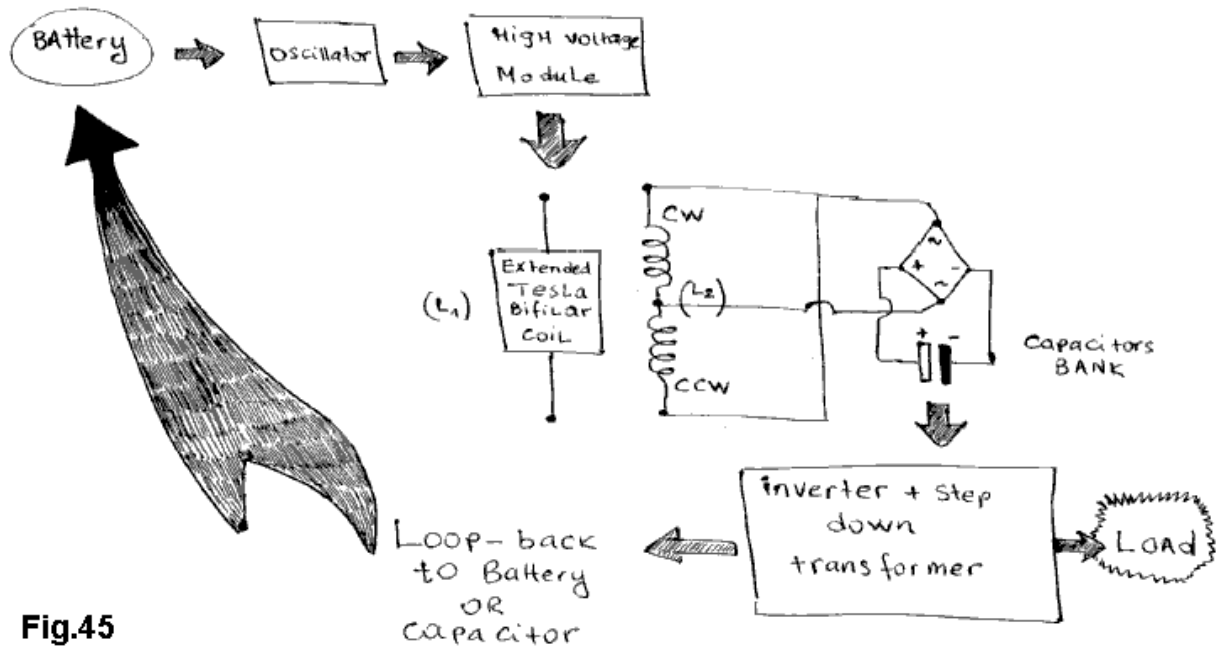 BAttery
Oscillator
HigH voltage
Module
CW
Extended
Tesla
Bifilar
COiL
(L1)
(L2)
CCW
~
+
-
~
+
-
Capacitors
BANK
inverter + step
down
transformer
LOAD
Loop-back
to Battery
OR
Capacitor
Fig.45